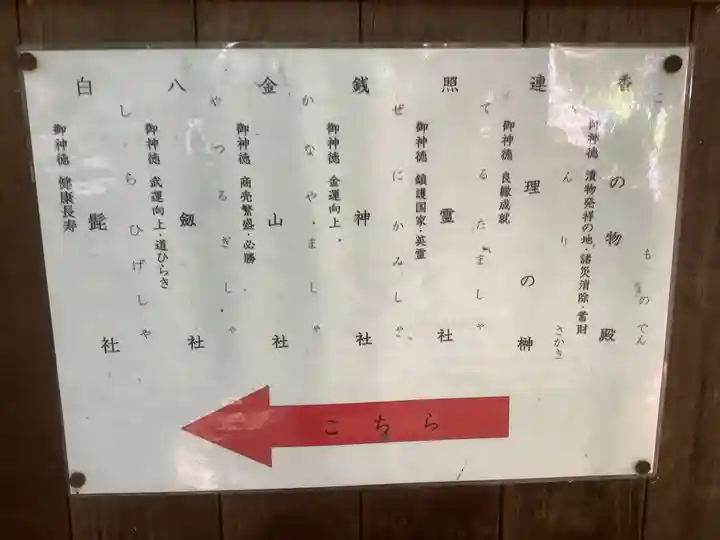 こうのものでん
香の物殿
御神徳 漬物発祥の地・諸災消除・蓄財
れんりのさかき
連理の榊
御神徳 良縁成就
てるたましゃ
照霊社
御神徳 鎮護国家・英霊
ぜにかみしゃ
銭神社
御神徳 金運向上・
かなやましゃ
金山社
御神徳 商売繁盛・必勝
やつるぎしゃ
八劔社
御神徳 武運向上・道ひらき
しらひげしゃ
白髭社
御神徳 健康長寿
こちら